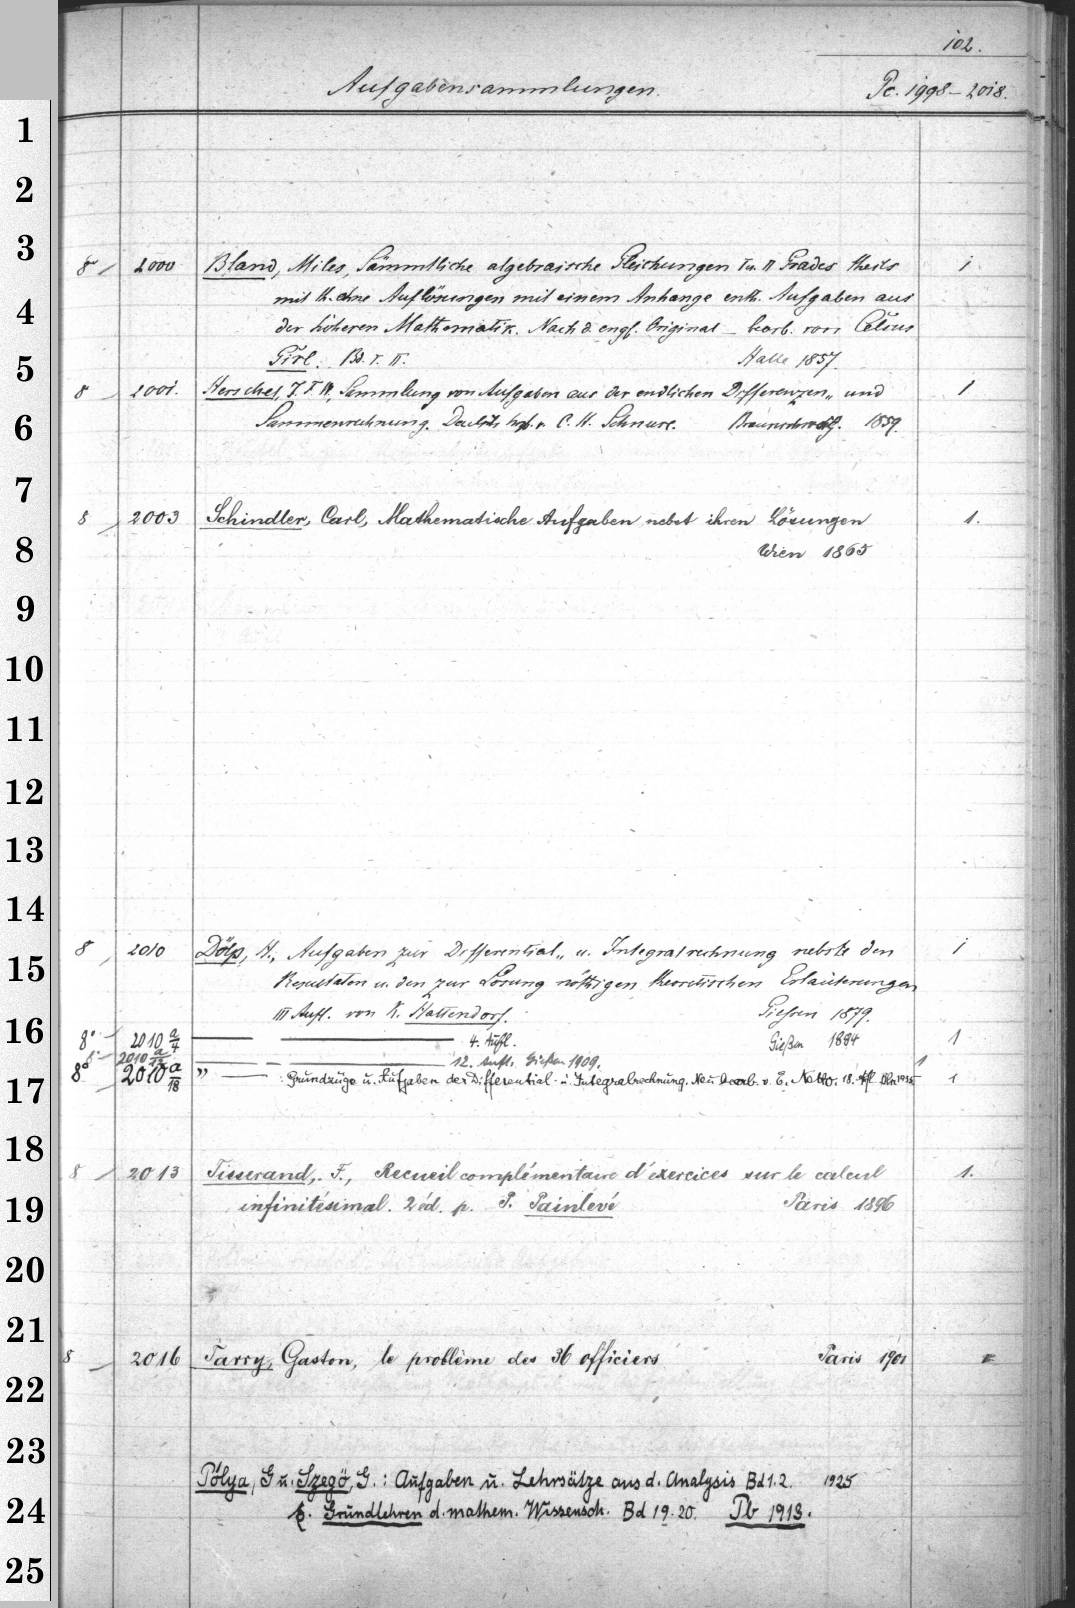 102.
Aufgabensammlungen. Pc. 1998–2018.
1
2
3
8 2000 Bland, Miles, Sämmtliche algebraische Gleichungen I u. II Grades theils 1
mit th. ohne Auflösungen mit einem Anhange enth. Aufgaben aus
4
der höheren Mathematik. Nach d. engl. Original bearb. von
5
Girl. Bd. I. II. Halle 1857.
8 2001. Herschel, J. F. W., Sammlung von Aufgaben aus der endlichen Differenzen„ und 1
6
Summenrechnung. Deutsch hgb. v. C. H. Schnuse. Braunschweig. 1859.
7
8 2003 Schindler, Carl, Mathematische Aufgaben nebst ihren Lösungen 1.
8
Wien 1865
9
10
11
12
13
14
8 2010 Dölp, H., Aufgaben zur Differential„ u. Integralrechnung nebst den 1
15
Resultaten u. den zur Lösung nöthigen theoretischen Erläuterungen
III Aufl. von K. Hattendorf. Giessen 1879.
16
8° 2010 a/4 4. Aufl. Gießen 1884 1
8° 2010 a/12 12. Aufl. Gießen 1909. 1
17
8° 2010 a/18 „ Grundzüge u. Aufgaben der Differential- u. Integralrechnung. Neu bearb. v. E. Netto. 18. Aufl. Bln 1935 1
18
8 2013 Tisserand, F., Recueil complémentaire d'exercices sur le calcul 1.
19
infinitésimal. 2 éd. p. P. Painlevé Paris 1896
20
21
8 2016 Tarry, Gaston, le problème des 36 officiers Paris 1901
22
23
Pólya, G u. Szegö, G.: Aufgaben u. Lehrsätze aus d. Analysis Bd 1.2. 1925
24
Grundlehren d. mathem. Wissensch. Bd 19.20. Pb 1913.
25